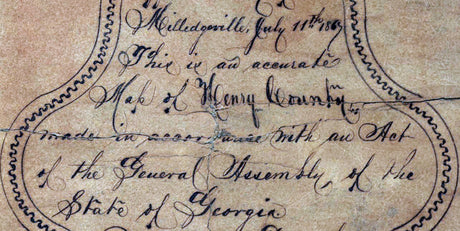 Milledgeville, July 11th 1869
This is an accurate
Map of Henry County
made in accordance with an Act
of the General Assembly, of the
State of Georgia